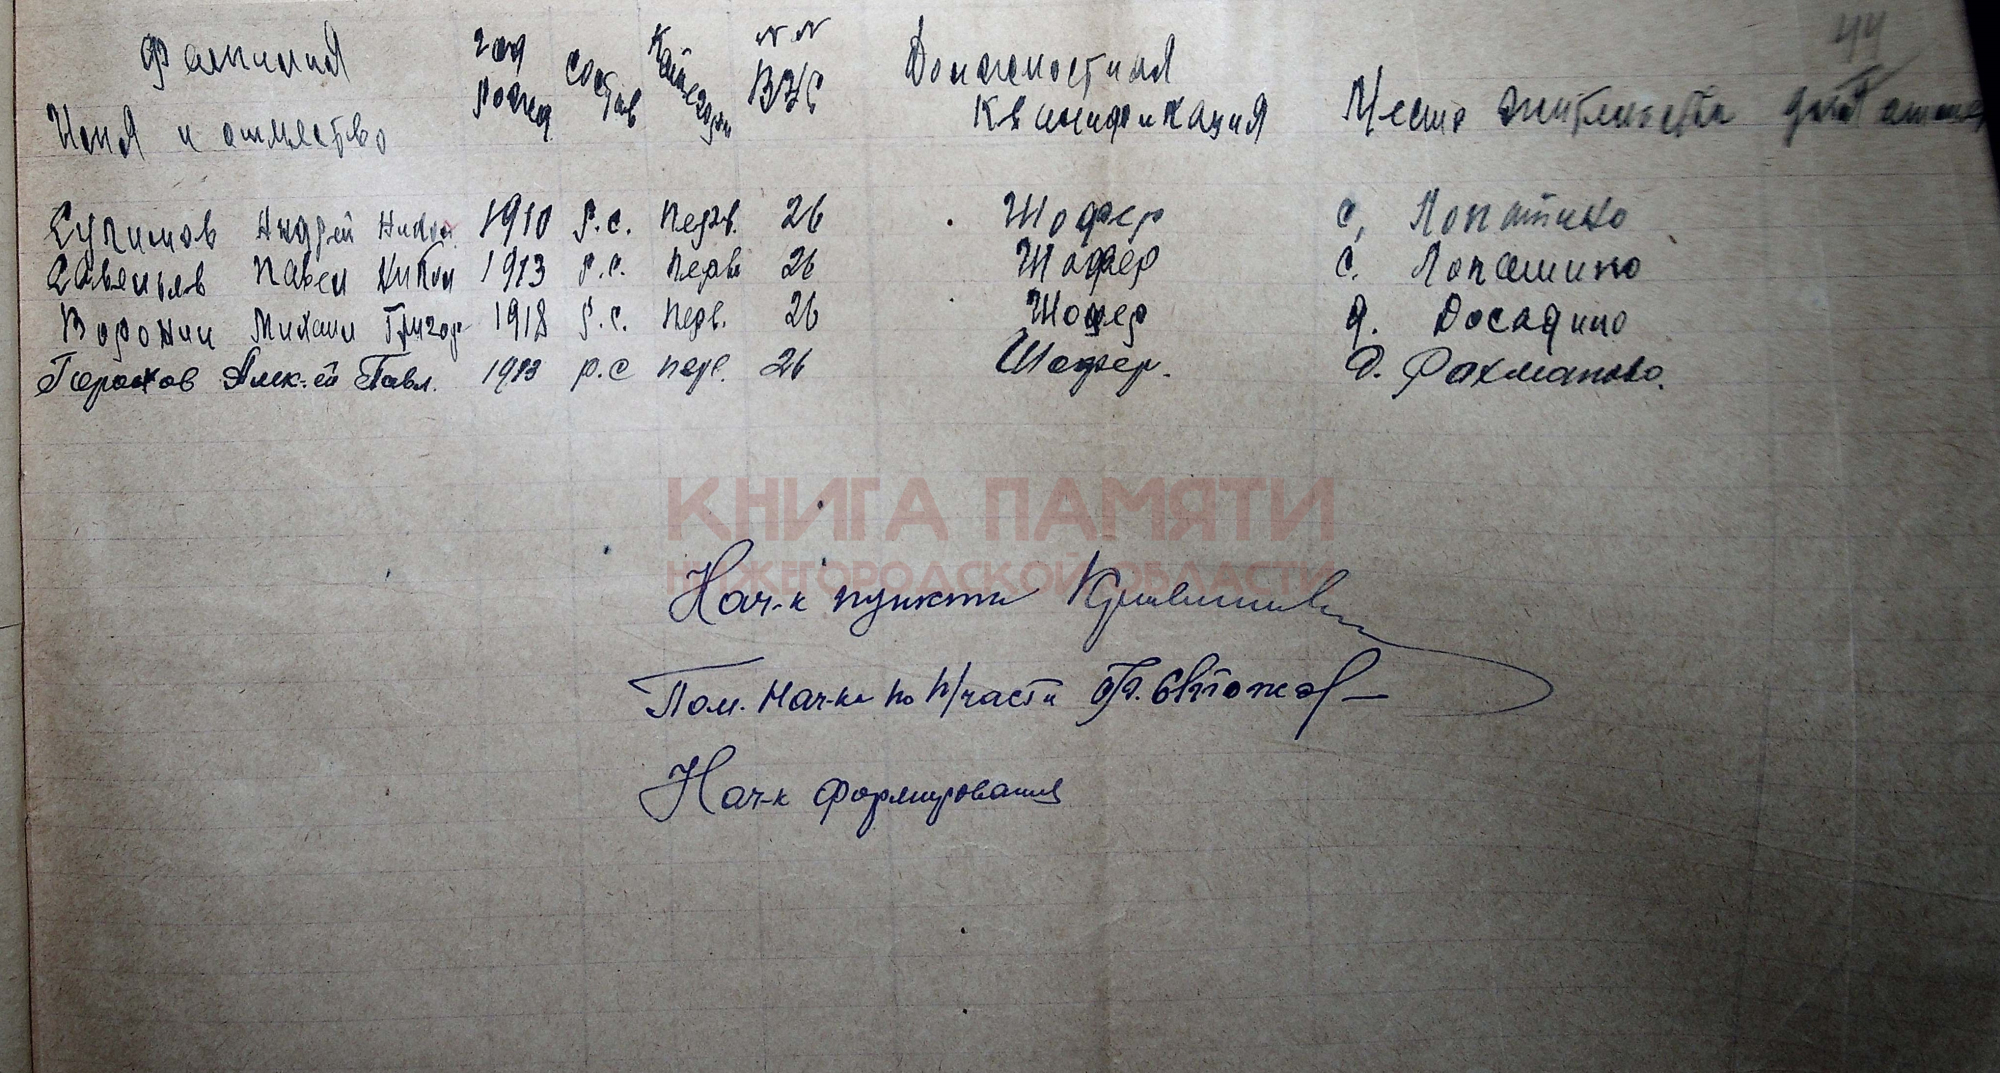 44
Фамилия Имя и отчество год рожд состав категория №№ ВУС Должностная квалификация Место жительства дата
Андрей 1910 р.с. перв. 26 Шофер с. Лопатино
Савельев Павел 1913 р.с. перв 26 Шофер с. Лопатино
Воронин Михаил Григор 1918 р.с. перв. 26 Шофер д. Досадино
Горохов Алек-ей Павл. 1913 р.с перв. 26 Шофер. д. Рахманово.
КНИГА ПАМЯТИ
НИЖЕГОРОДСКОЙ ОБЛАСТИ
Нач-к пункта
Пом. Нач-ка по п/части
Нач-к формирования